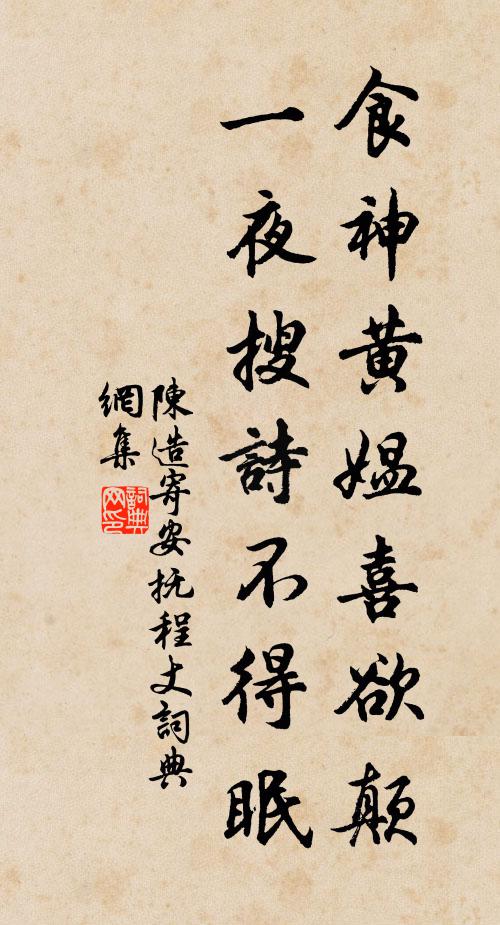 食神黄媪喜欲颠
一夜搜詩不得眠
陳造寄安抚程丈詞典
網集
詞典
网印